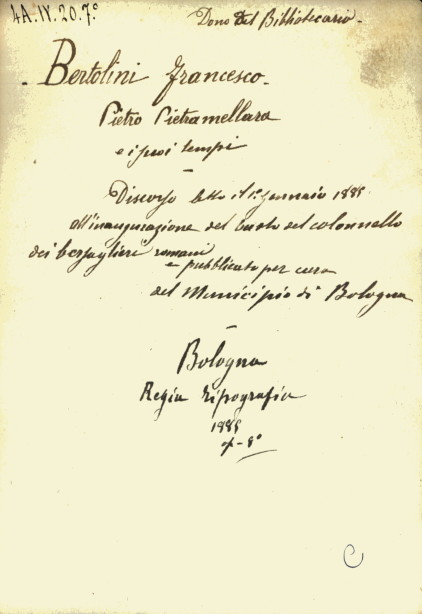 4A.IV.20.7°
Dono del Bibliotecario.
Bertolini Francesco.
Pietro Pietramellara
e i suoi tempi
Discorso letto il 1° Gennaio 1885
all'inaugurazione del busto del colonnello
dei bersaglieri romani
e pubblicato per cura
del Municipio di Bologna
Bologna
Regia Tipografia
1885
op-8°
C